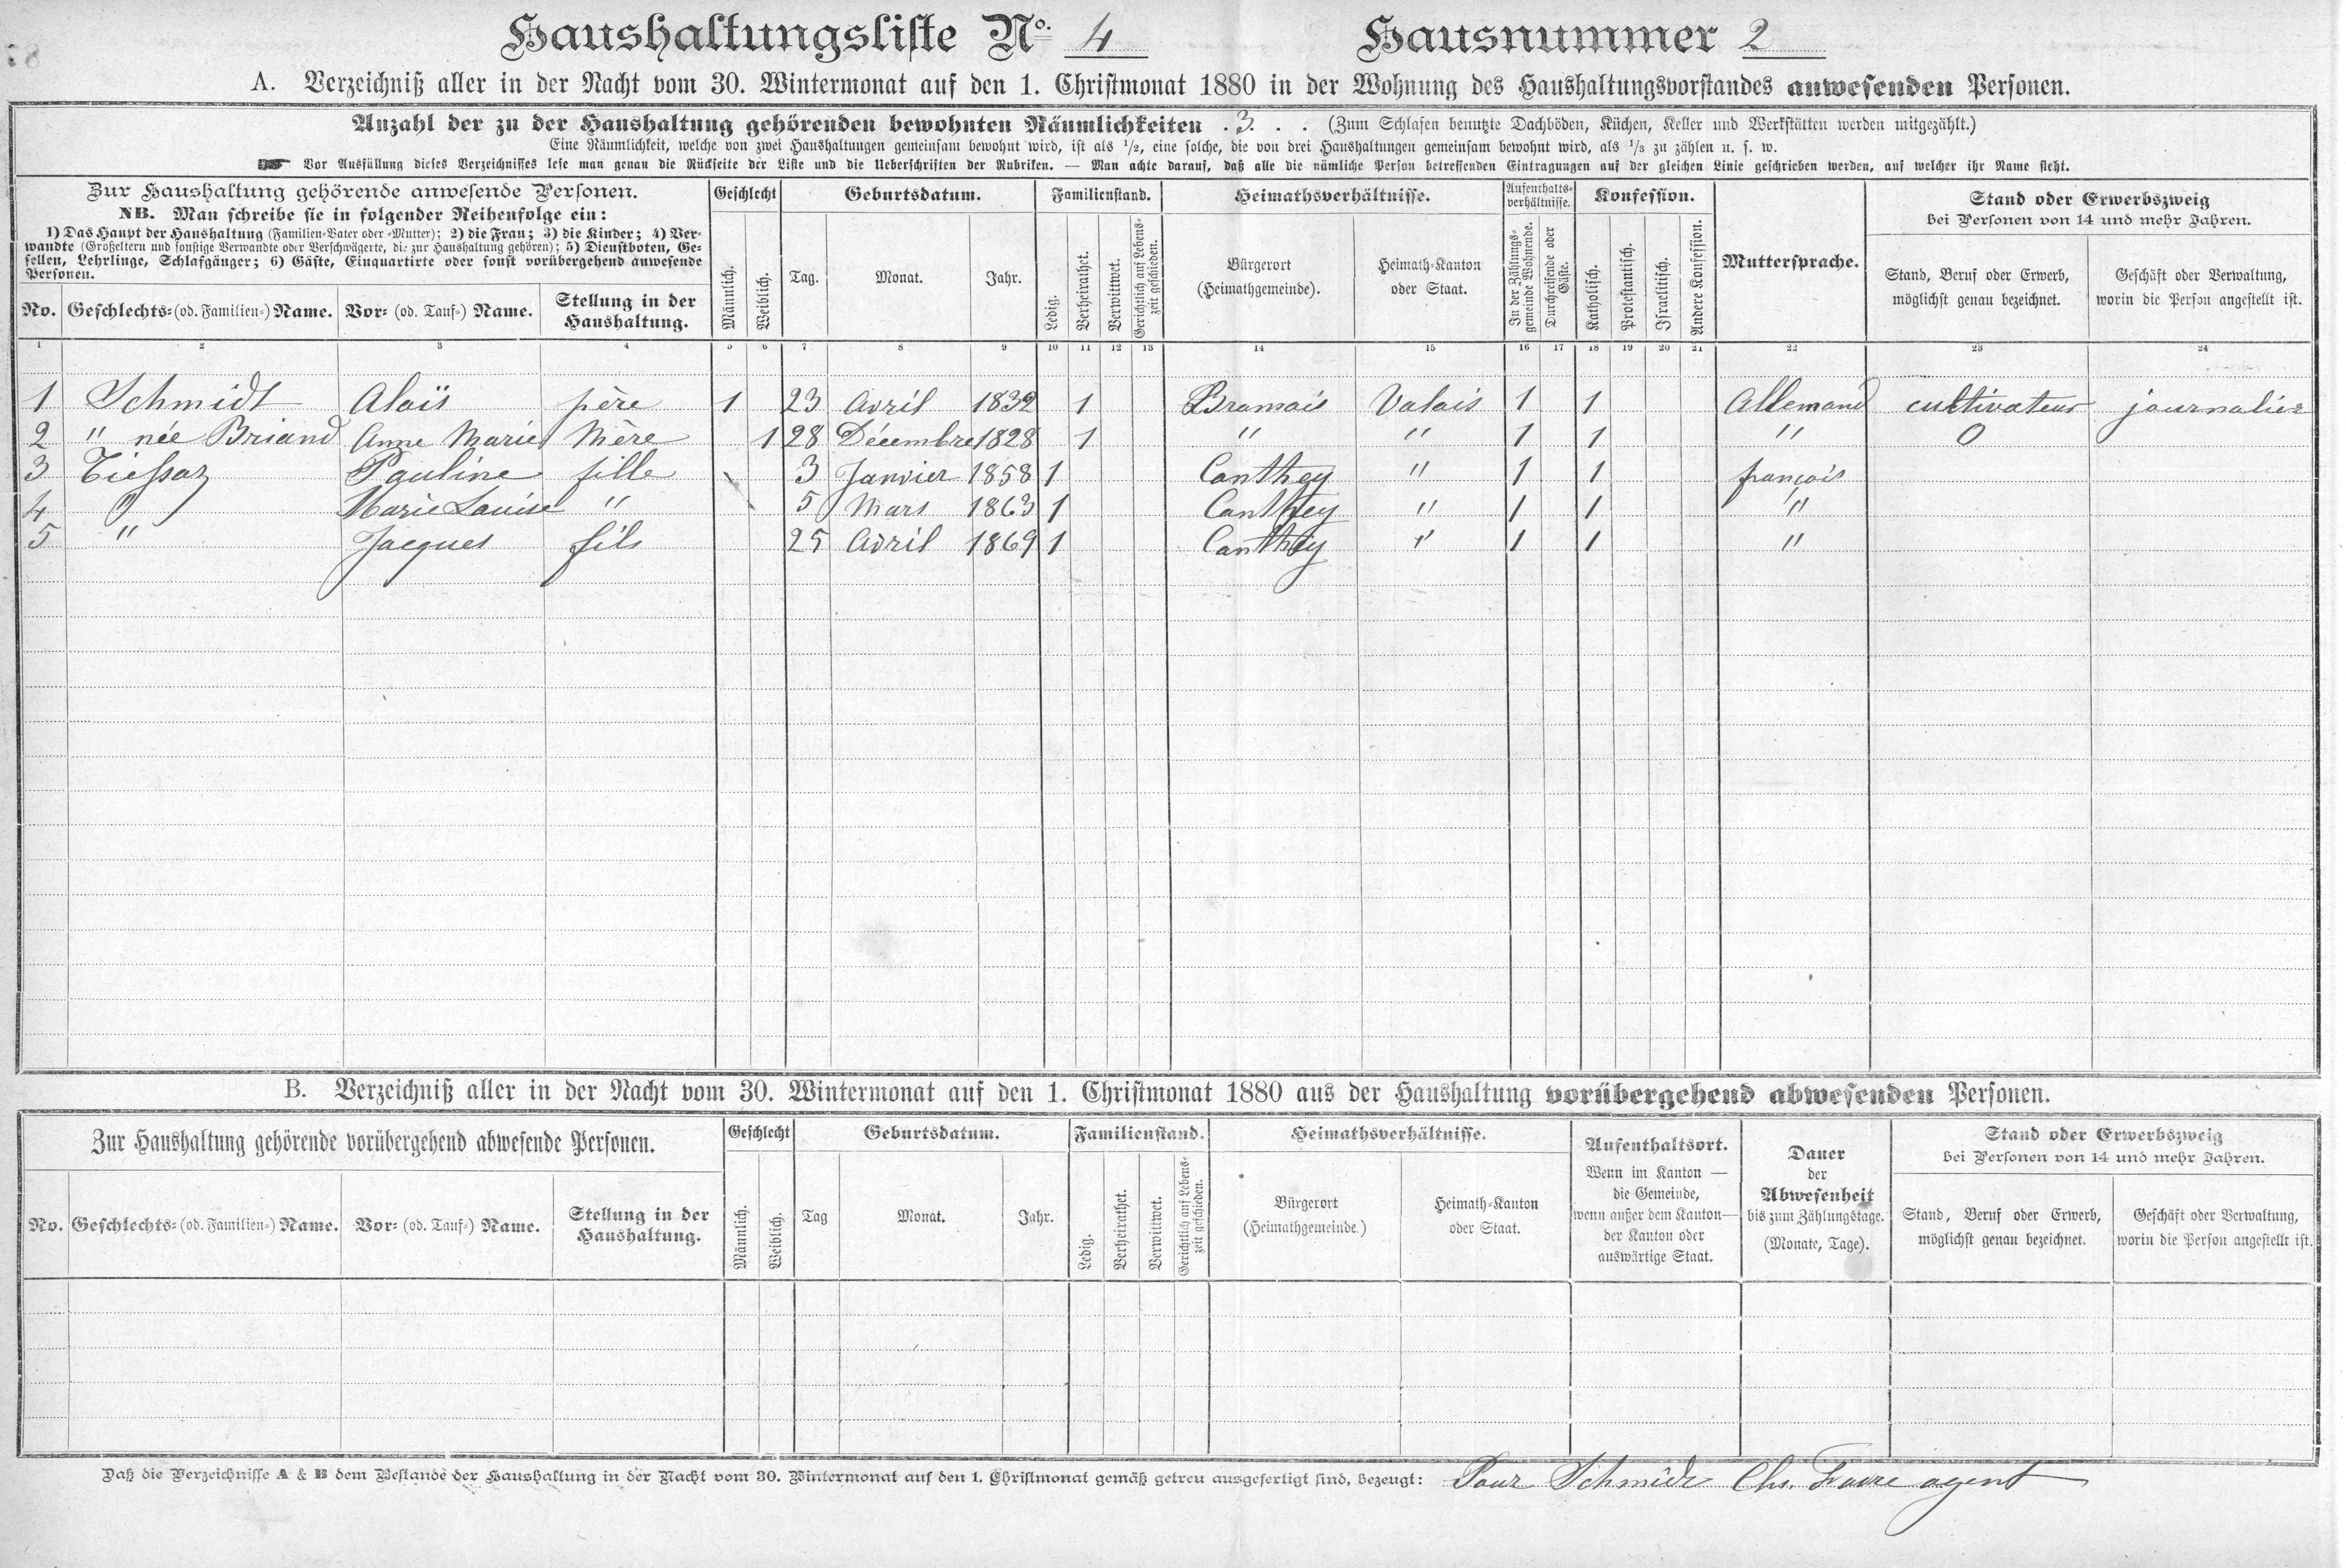 Haushaltungsliste No. 4 Hausnummer 2
A. Verzeichniß aller in der Nacht vom 30. Wintermonat auf den 1. Christmonat 1880 in der Wohnung des Haushaltungsvorstandes anwesenden Personen.
Anzahl der zu der Haushaltung gehörenden bewohnten Räumlichkeiten . 3 . . (Zum Schlafen benutzte Dachböden, Küchen, Keller und Werkstätten werden mitgezählt.)
Eine Räumlichkeit, welche von zwei Haushaltungen gemeinsam bewohnt wird, ist als 1/2, eine solche, die von drei Haushaltungen gemeinsam bewohnt wird, als 1/3 zu zählen u. s. w.
☛ Vor Ausfüllung dieses Verzeichnisses lese man genau die Rückseite der Liste und die Ueberschriften der Rubriken. — Man achte darauf, daß alle die nämliche Person betreffenden Eintragungen auf der gleichen Linie geschrieben werden, auf welcher ihr Name steht.
Zur Haushaltung gehörende anwesende Personen.
NB. Man schreibe sie in folgender Reihenfolge ein:
1) Das Haupt der Haushaltung (Familien-Vater oder -Mutter); 2) die Frau; 3) die Kinder; 4) Ver-
wandte (Großeltern und sonstige Verwandte oder Verschwägerte, die zur Haushaltung gehören); 5) Dienstboten, Ge-
sellen, Lehrlinge, Schlafgänger; 6) Gäste, Einquartirte oder sonst vorübergehend anwesende
Personen.
No. Geschlechts- (od. Familien-) Name. Vor- (od. Tauf-) Name. Stellung in der
Haushaltung.
Geschlecht
Männlich. Weiblich.
Geburtsdatum.
Tag. Monat. Jahr.
Familienstand.
Ledig. Verheirathet. Verwittwet. Gerichtlich auf Lebens-
zeit geschieden.
Heimathsverhältnisse.
Bürgerort
(Heimathgemeinde).
Heimath-Kanton
oder Staat.
Aufenthalts-
verhältnisse.
In der Zählungs-
gemeinde Wohnende.
Durchreisende oder
Gäste.
Konfession.
Katholisch. Protestantisch. Israelitisch. Andere Konfession.
Muttersprache.
Stand oder Erwerbszweig
bei Personen von 14 und mehr Jahren.
Stand, Beruf oder Erwerb,
möglichst genau bezeichnet.
Geschäft oder Verwaltung,
worin die Person angestellt ist.
1 2 3 4 5 6 7 8 9 10 11 12 13 14 15 16 17 18 19 20 21 22 23 24
1 Schmidt Aloïs père 1 23 Avril 1832 1 Bramois Valais 1 1 Allemand cultivateur journalier
2 " née Briand Anne Marie Mère 1 28 Décembre 1828 1 " " 1 1 " 0
3 Tiessaz Pauline fille 3 Janvier 1858 1 Conthey " 1 1 français
4 " Marie Louise " 5 Mars 1863 1 Conthey " 1 1 "
5 " Jacques fils 25 Avril 1869 1 Conthey " 1 1 "
B. Verzeichniß aller in der Nacht vom 30. Wintermonat auf den 1. Christmonat 1880 aus der Haushaltung vorübergehend abwesenden Personen.
Zur Haushaltung gehörende vorübergehend abwesende Personen.
No. Geschlechts- (od. Familien-) Name. Vor- (od. Tauf-) Name. Stellung in der
Haushaltung.
Geschlecht
Männlich. Weiblich.
Geburtsdatum.
Tag Monat. Jahr.
Familienstand.
Ledig. Verheirathet. Verwittwet. Gerichtlich auf Lebens-
zeit geschieden.
Heimathsverhältnisse.
Bürgerort
(Heimathgemeinde.)
Heimath-Kanton
oder Staat.
Aufenthaltsort.
Wenn im Kanton —
die Gemeinde,
wenn außer dem Kanton—
der Kanton oder
auswärtige Staat.
Dauer
der
Abwesenheit
bis zum Zählungstage.
(Monate, Tage).
Stand oder Erwerbszweig
bei Personen von 14 und mehr Jahren.
Stand, Beruf oder Erwerb,
möglichst genau bezeichnet.
Geschäft oder Verwaltung,
worin die Person angestellt ist.
Daß die Verzeichnisse A & B dem Bestande der Haushaltung in der Nacht vom 30. Wintermonat auf den 1. Christmonat gemäß getreu ausgefertigt sind, bezeugt: Pour Schmidt Chs. Favre agent